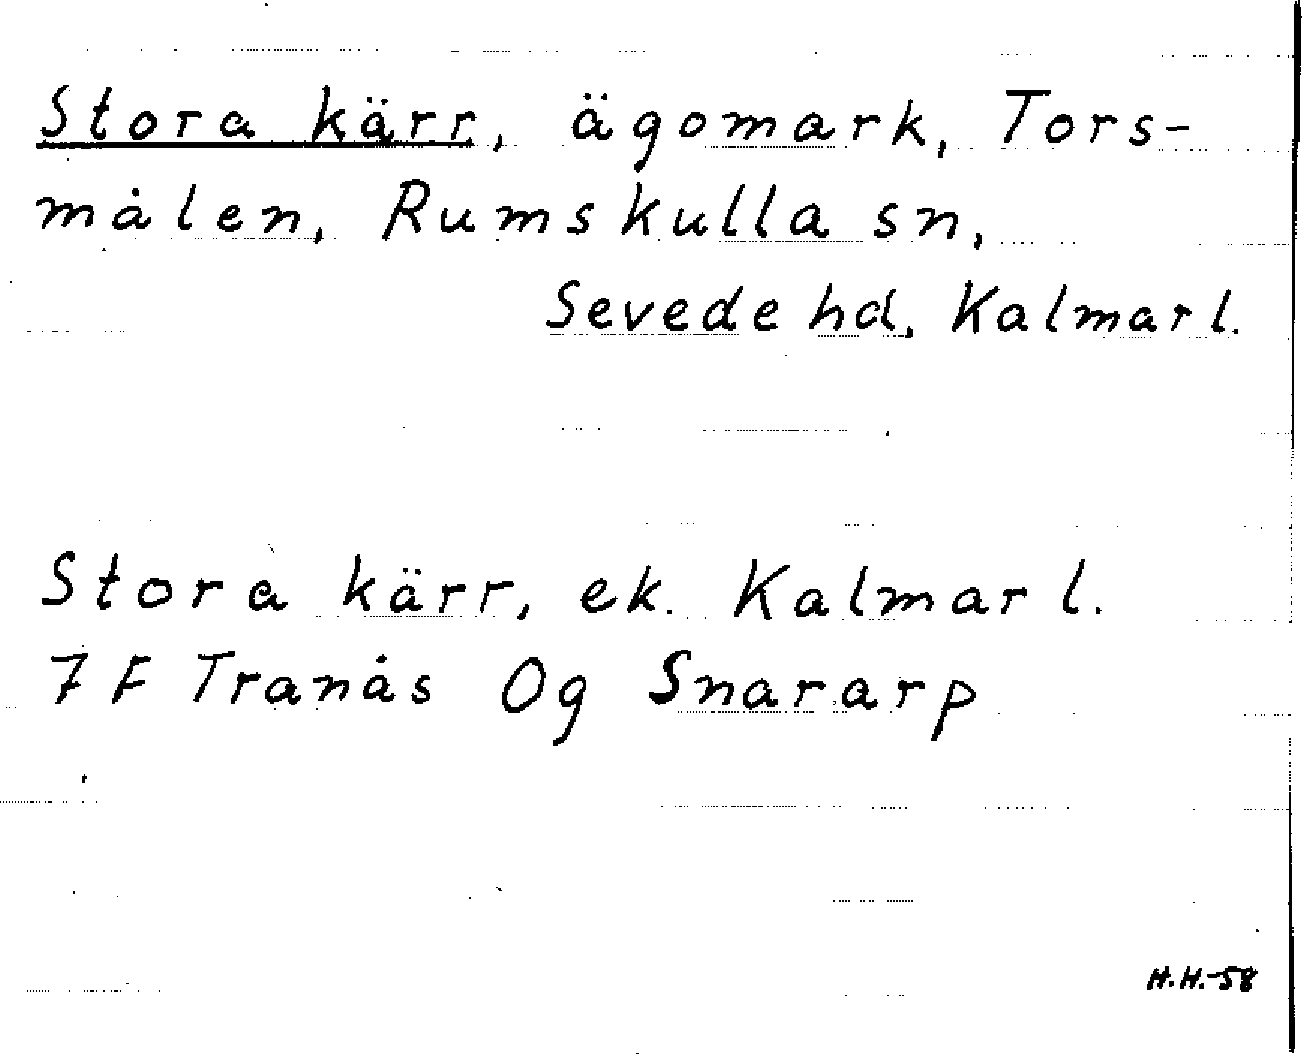 Stora kärr, ägomark, Tors-
målen, Rumskulla sn,
Sevede hd, Kalmar l.
Stora kärr, ek. Kalmar l.
7 F Tranås Og Snararp
H.H.-58